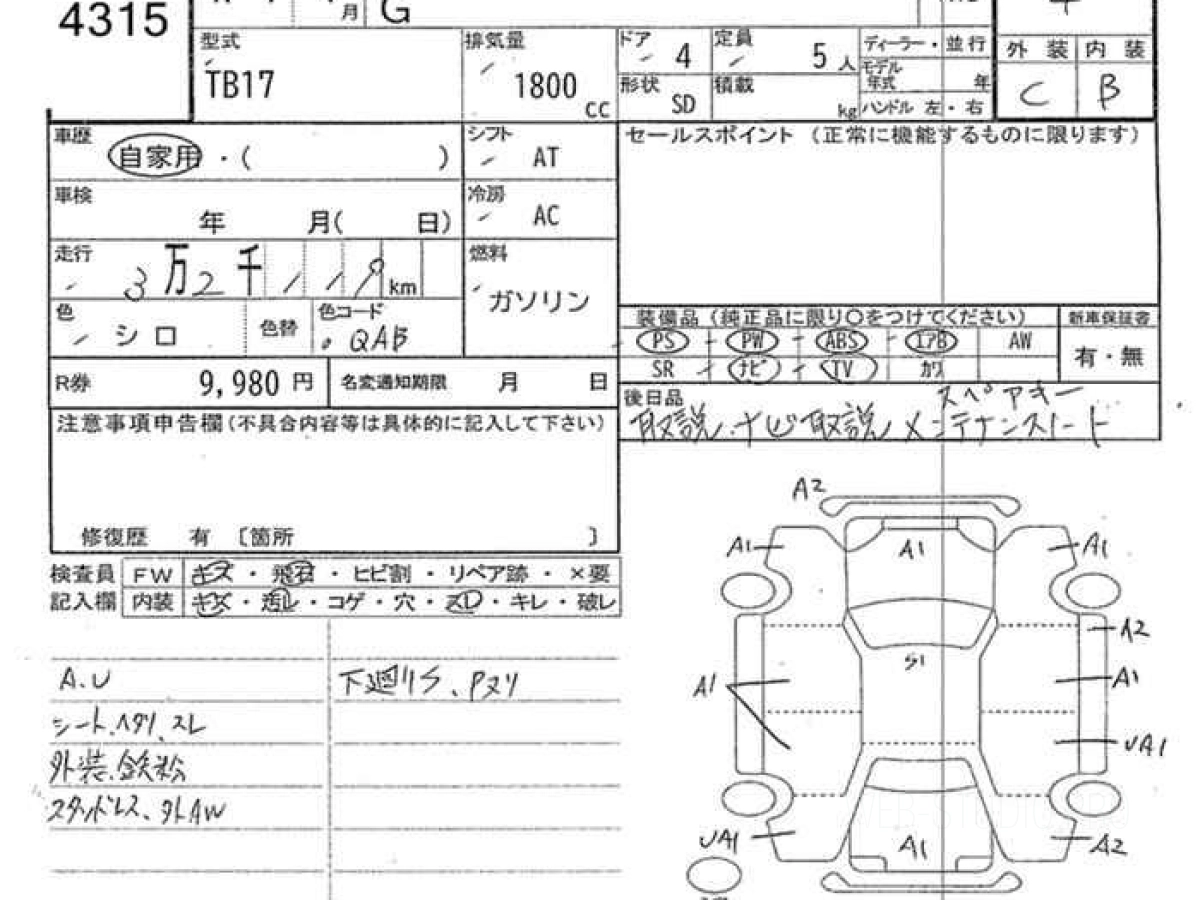 4315
月
G
型式
TB17
排気量
1800
cc
ドア
4
定員
5 人
形状
SD
積載
kg
ディーラー・並行
モデル年式 年
ハンドル 左・右
外装 内装
C B
車歴
自家用・( )
シフト
AT
車検
年 月( 日)
冷房
AC
走行
3万2千119km
燃料
ガソリン
色
シロ
色替
色コード
QAB
R券
9,980 円
名変通知期限 月 日
セールスポイント (正常に機能するものに限ります)
装備品 (純正品に限り○をつけてください)
新車保証書
PS PW ABS エアB AW
SR ナビ TV カワ
有・無
後日品
スペアキー
取説、ナビ取説 メンテナンスノート
注意事項申告欄(不具合内容等は具体的に記入して下さい)
修復歴 有 〔箇所 〕
検査員 FW キズ・飛石・ヒビ割・リペア跡・×要
記入欄 内装 キズ・汚レ・コゲ・穴・スレ・キレ・破レ
A.U
下廻りS、Pヌリ
シート、ヘタリ、スレ
外装、鉄粉
スタッドレス、外AW
A2
A1
A1
A1
A2
S1
A1
A1
UA1
UA1
A1
A2